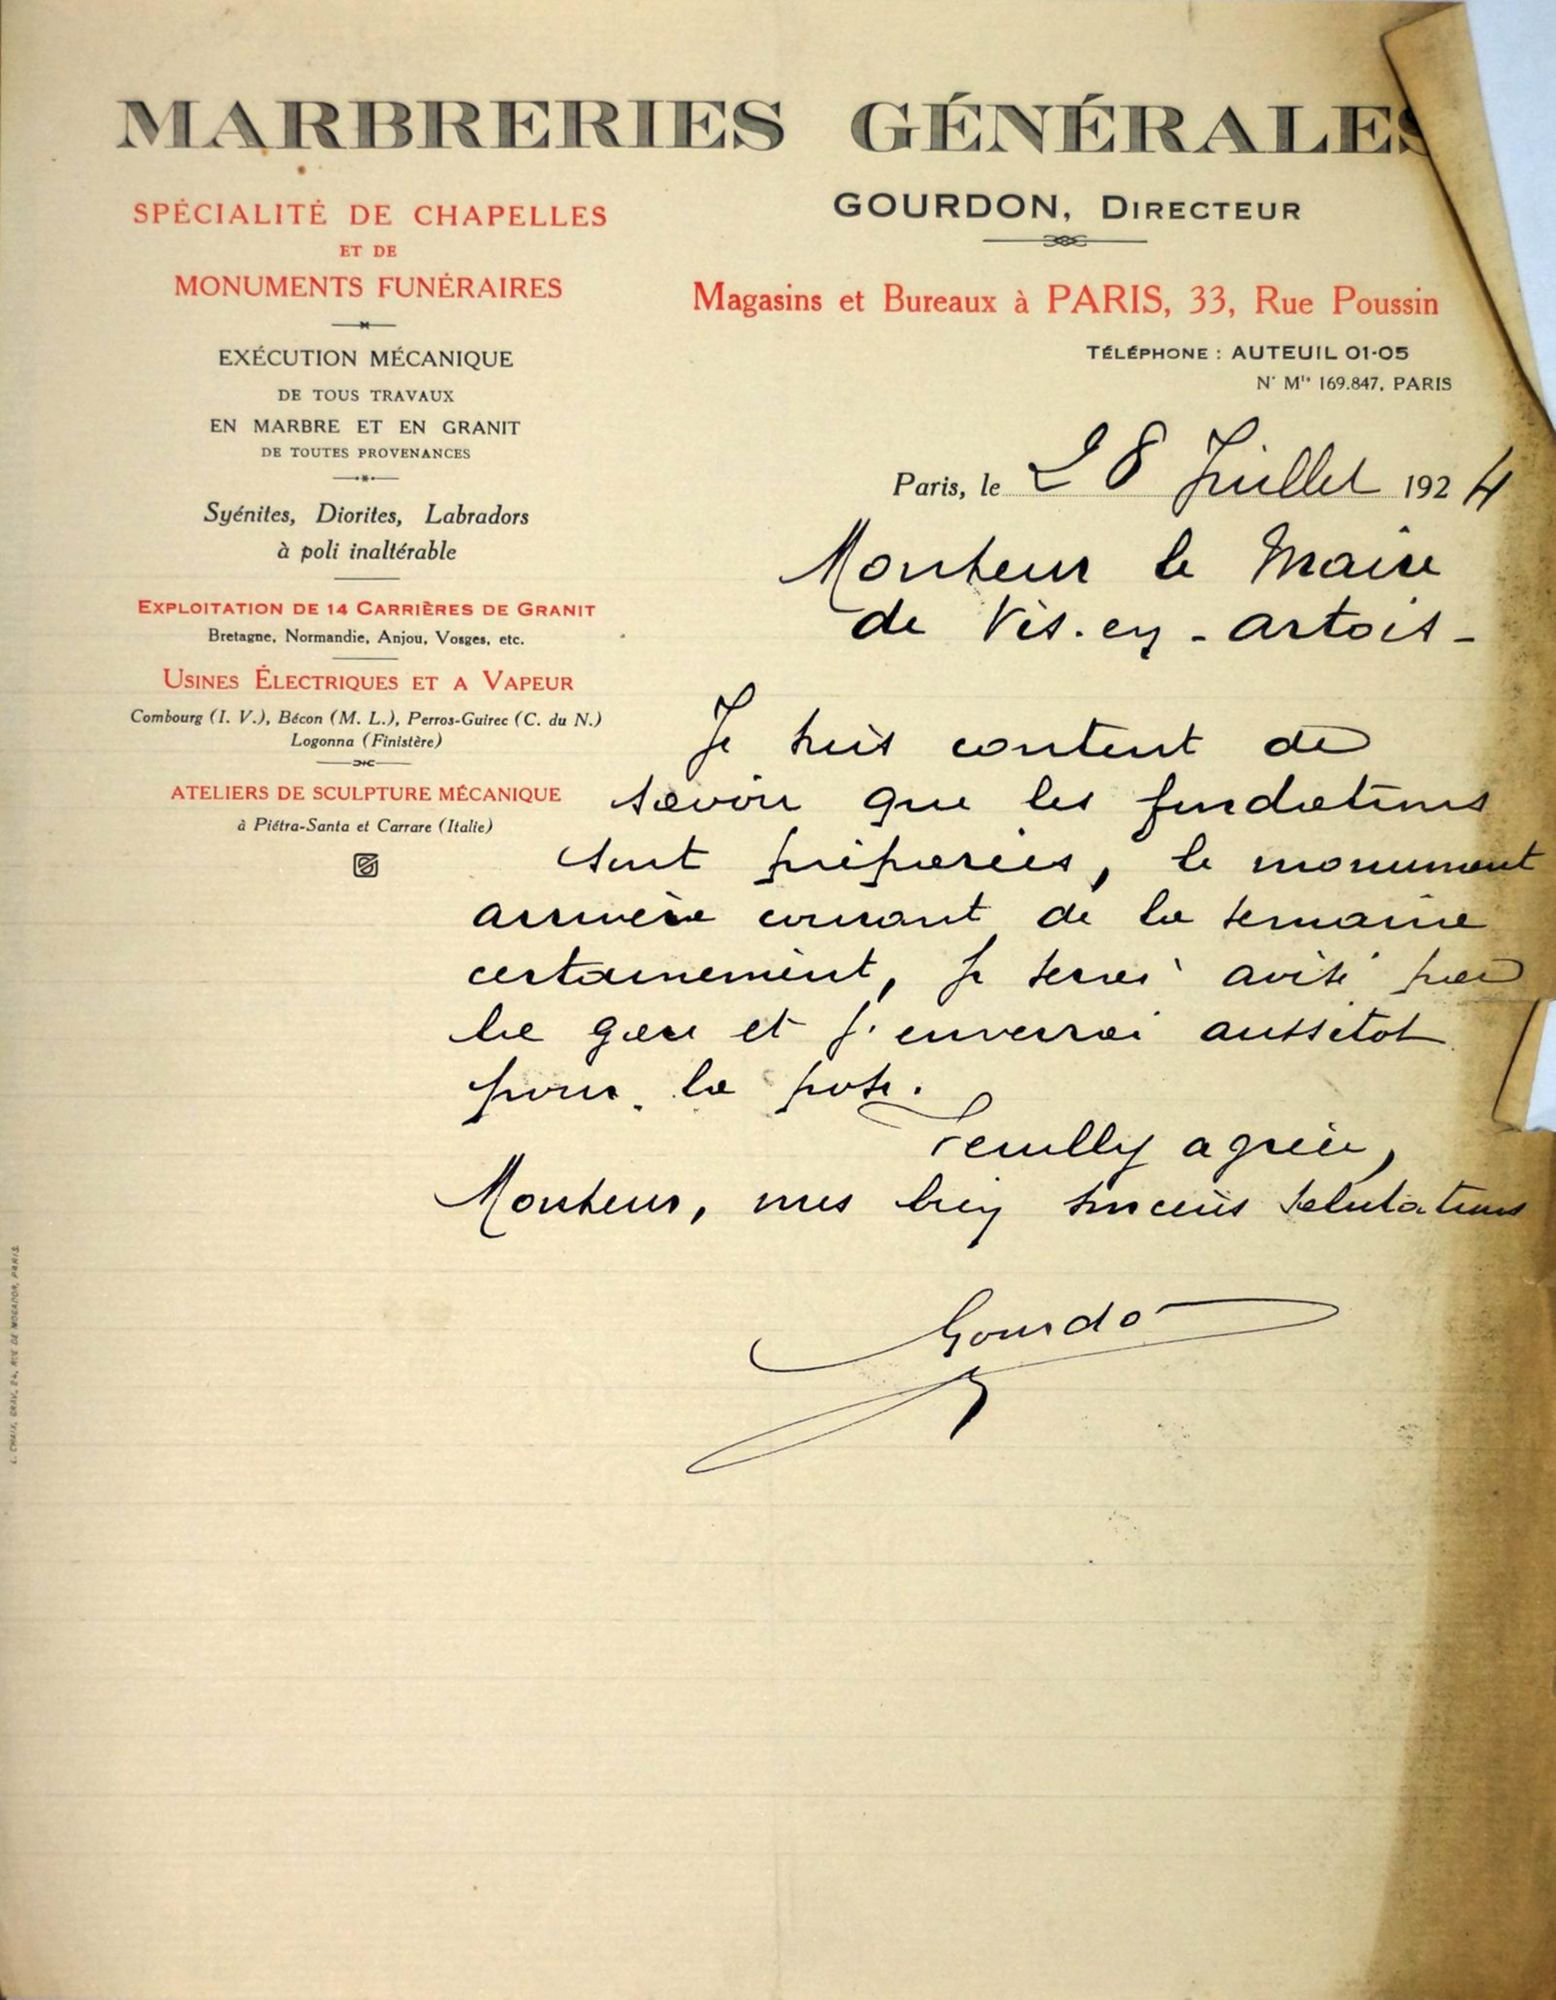 MARBRERIES GÉNÉRALES
SPÉCIALITÉ DE CHAPELLES
ET DE
MONUMENTS FUNÉRAIRES
EXÉCUTION MÉCANIQUE
DE TOUS TRAVAUX
EN MARBRE ET EN GRANIT
DE TOUTES PROVENANCES
Syénites, Diorites, Labradors
à poli inaltérable
EXPLOITATION DE 14 CARRIÈRES DE GRANIT
Bretagne, Normandie, Anjou, Vosges, etc.
USINES ÉLECTRIQUES ET A VAPEUR
Combourg (I. V.), Bécon (M. L.), Perros-Guirec (C. du N.)
Logonna (Finistère)
ATELIERS DE SCULPTURE MÉCANIQUE
à Piétra-Santa et Carrare (Italie)
GOURDON, DIRECTEUR
Magasins et Bureaux à PARIS, 33, Rue Poussin
TÉLÉPHONE : AUTEUIL 01-05
N° Mle 169.847, PARIS
Paris, le 28 Juillet 1924
Monsieur le Maire
de Vis-en-Artois-
Je suis content de
savoir que les fondations
sont préparées, le monument
arrivera courant de la semaine
certainement, je serai avisé par
la gare et j'enverrai aussitot
pour la pose.
Veuillez agréer,
Monsieur, mes bien sincères salutations
Gourdon
L. CHAIX, GRAV. 24, RUE DE MOGADOR, PARIS.